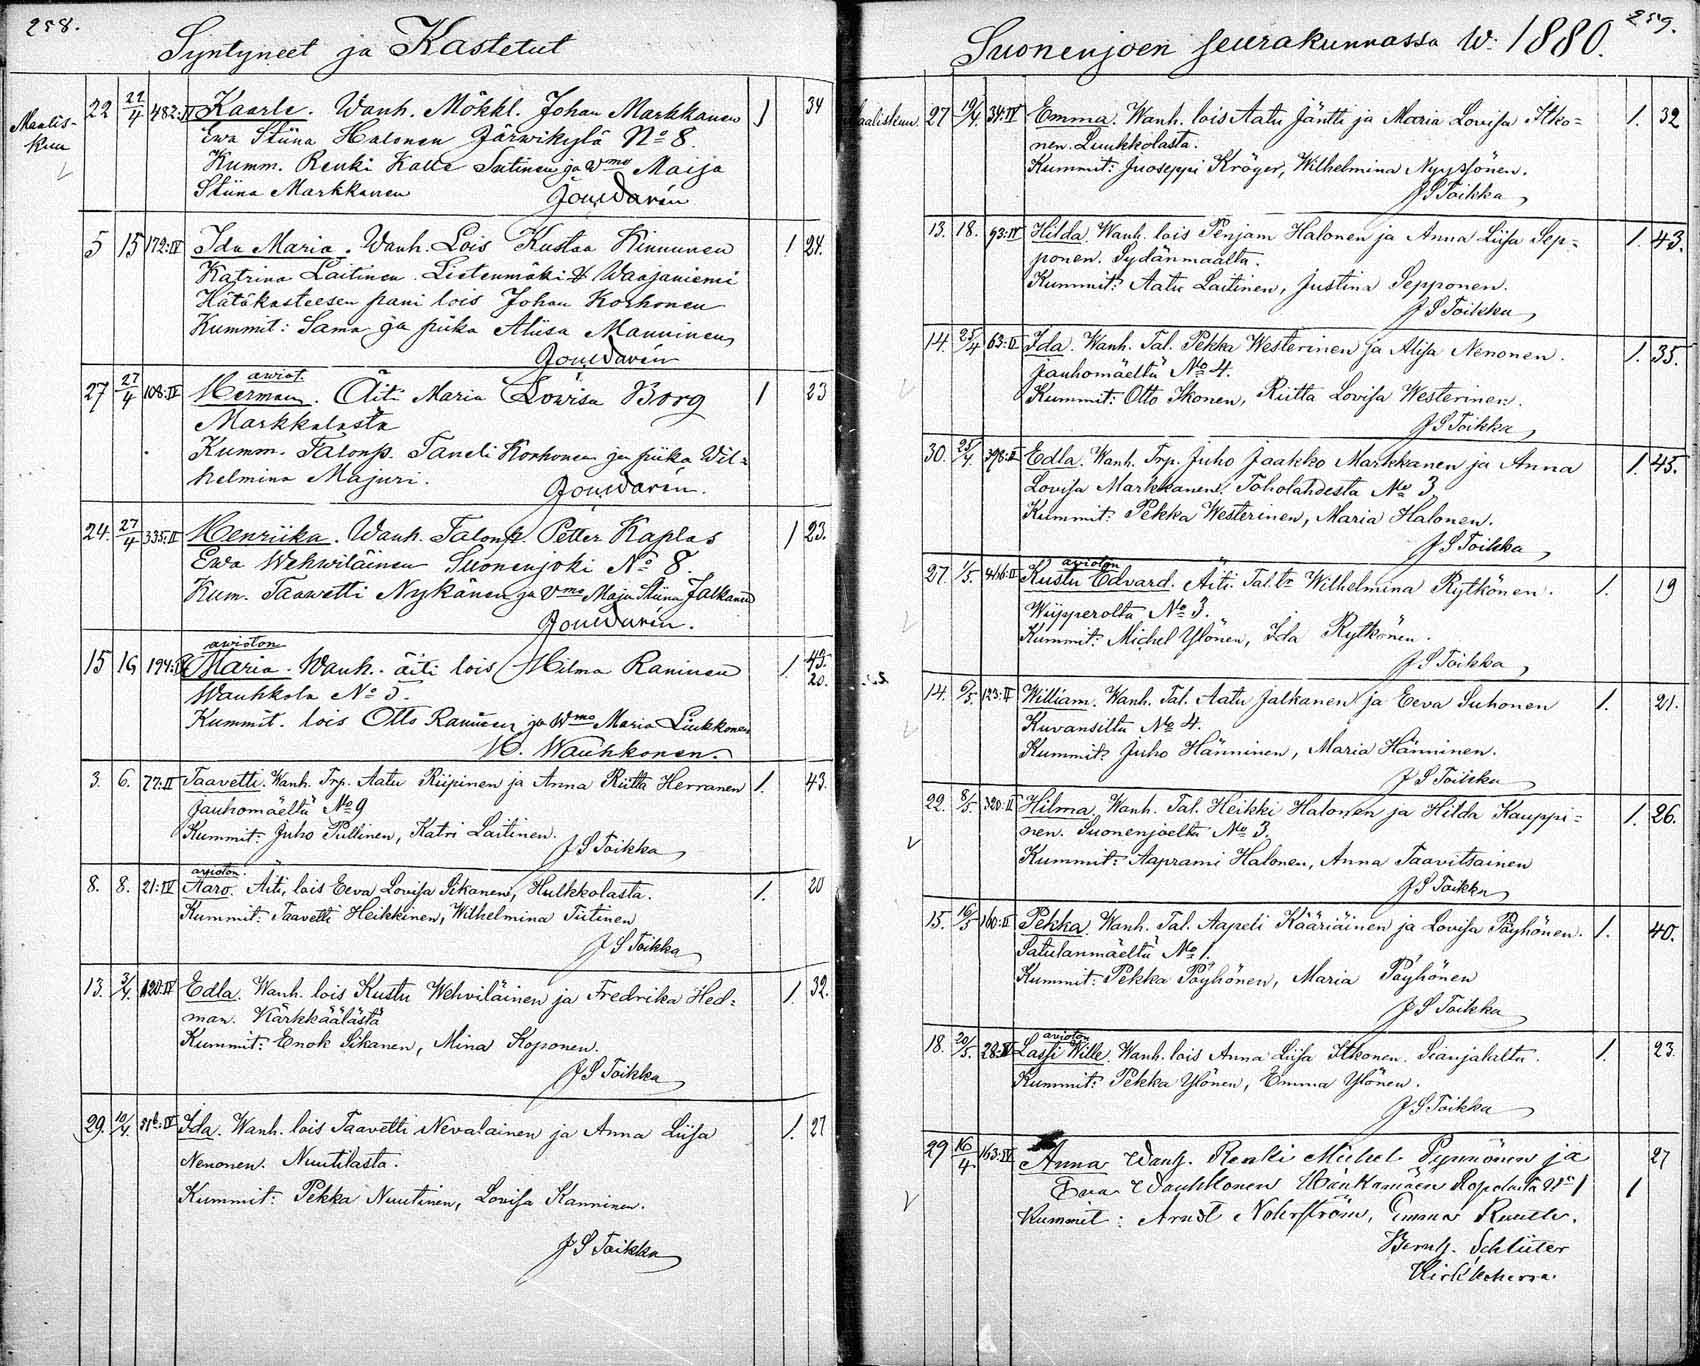 258.
Syntyneet ja Kastetut
Maalis-
kuu
22 22/4 482:II Kaarle. Wanh. Mökkl. Johan Markkanen 1 34
Ewa Stiina Halonen Järwikylä No 8.
Kumm. Renki Kalle Sutinen ja Vmo Maija
Stiina Markkanen
5 15 172:IV Ida Maria. Wanh. Lois Kustaa Kinnunen 1 24.
Katrina Laitinen. Lietenmäki & Waajaniemi
Hätäkasteesen pani lois Johan Korhonen
Kummit: Sama ja piika Aliisa Manninen
awiot.
27 27/4 108:IV Herman. Äiti Maria Lowisa Borg 1 23
Markkalasta
Kumm. Talonp. Taneli Korhonen ja piika Wil=
helmina Majuri.
24. 27/4 335:II Henriika. Wanh. Talonp. Petter Kaplas 1 23.
Ewa Wehwiläinen Suonenjoki No 8.
Kum. Taawetti Nykänen ja Vmo Maja Stiina Jalkanen
awioton
15 16 194: Maria. Wanh. äiti lois Hilma Raninen 1. 43. 20.
Wauhkola No 5.
Kummit. lois Otto Raninen ja Wmo Maria Liukkonen
H. Wauhkonen.
3. 6. 77:II Taavetti. Wanh. Trp. Aatu Riipinen ja Anna Riitta Herranen 1. 43.
Jauhomäeltä No 9
Kummit: Juho Pullinen, Katri Laitinen.
J S Toikka
avioton.
8. 8. 21:IV Aaro. Äiti, lois Eeva Lovisa Sikanen, Hulkkolasta. 1. 20
Kummit: Taavetti Heikkinen, Wilhelmina Tiitinen
J S Toikka
13. 3/4. 120:IV Edla. Wanh. lois Kustu Wehviläinen ja Fredrika Hed= 1. 32.
man. Kärkkäälästä
Kummit: Enok Sikanen, Mina Koponen.
J S Toikka
29. 10/4. IV Ida. Wanh. lois Taavetti Nevalainen ja Anna Liisa 1. 27
Nenonen. Nuutilasta.
Kummit: Pekka Nuutinen, Lovisa Kanninen.
J S Toikka
259.
Suonenjoen seurakunnassa W: 1880.
Maaliskuu. 27 19/4. 34:IV Emma. Wanh. lois Aatu Jäntti ja Maria Lovisa Itko= 1. 32
nen. Luukkolasta.
Kummit: Juoseppi Kröger, Wilhelmina Nyyssönen.
J S Toikka
13. 18. 93:IV Hilda. Wanh. lois Penjam Halonen ja Anna Liisa Sep= 1. 43.
ponen. Sydänmaalta.
Kummit: Aatu Laitinen, Justina Sepponen.
J S Toikka
14. 25/4 63:II Ida. Wanh. Tal. Pekka Westerinen ja Alisa Nenonen. 1. 35.
Jauhomäeltä No 4.
Kummit: Otto Ikonen, Riitta Lovisa Westerinen.
J S Toikka
30. 25/4. 398:II Edla. Wanh. Trp. Juho Jaakko Markkanen ja Anna 1. 45.
Lovisa Markkanen. Toholahdesta No 3
Kummit: Pekka Westerinen, Maria Halonen.
J S Toikka
avioton
27. 1/5. 446:II Kustu Edvard. Äiti. Tal.tr Wilhelmina Rytkönen. 1. 19
Wiipperolta No 3.
Kummit: Michel Ylönen, Ida Rytkönen.
J S Toikka
14. /5. 123:II William. Wanh. Tal. Aatu Jalkanen ja Eeva Suhonen 1. 21.
Kuvansilta No 4.
Kummit: Juho Hänninen, Maria Hänninen.
J S Toikka
22. 8/5. 320:II Hilma. Wanh. Tal. Heikki Halonen ja Hilda Kauppi= 1. 26.
nen. Suonenjoelta No 3.
Kummit: Aaprami Halonen, Anna Taavitsainen
J S Toikka
15. 16/5 160:II Pekka. Wanh. Tal. Aapeli Kääriäinen ja Lovisa Pöyhönen. 1. 40.
Satulanmäeltä No 1.
Kummit: Pekka Pöyhönen, Maria Pöyhönen
J S Toikka
avioton
18. 20/5. 28:IV Lassi Wille. Wanh. lois Anna Liisa Itkonen. Sianjalalta. 1. 23.
Kummit: Pekka Ylönen, Emma Ylönen.
J S Toikka
29 16/4. 163:IV Anna Wanh. Renki Michel Pynnönen ja 27
Ewa Wauhkonen Kopolasta No 1 1
Kummit: Arndt Nohrström, Emma Ruuth.
Bernh. Schlüter
Kirkkoherra.